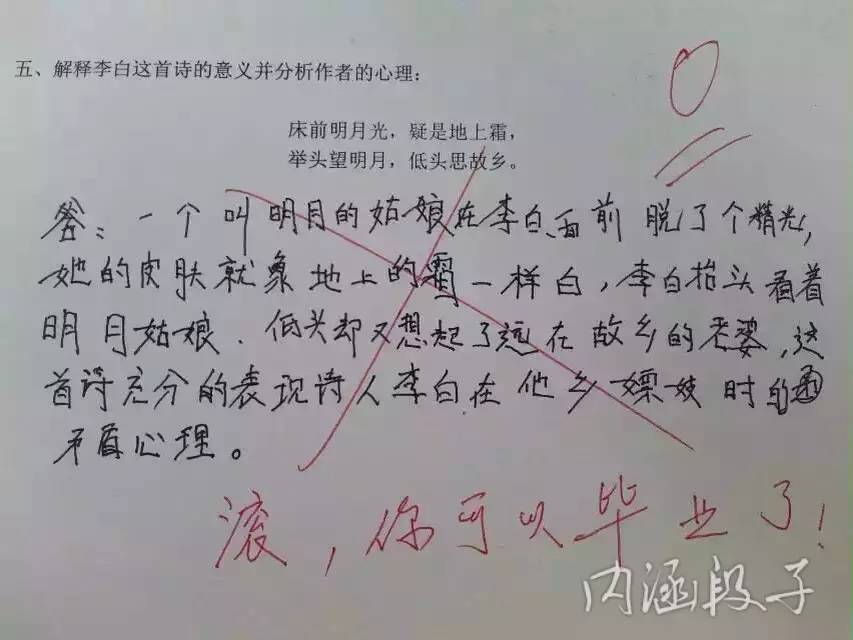 五、解释李白这首诗的意义并分析作者的心理：
0
床前明月光，疑是地上霜，
举头望明月，低头思故乡。
答：一个叫明月的姑娘在李白面前脱了个精光，
她的皮肤就象地上的霜一样白，李白抬头看着
明月姑娘．低头却又想起了远在故乡的老婆，这
首诗充分的表现诗人李白在他乡嫖妓时的
矛盾心理。
滚，你可以毕业了！
内涵段子